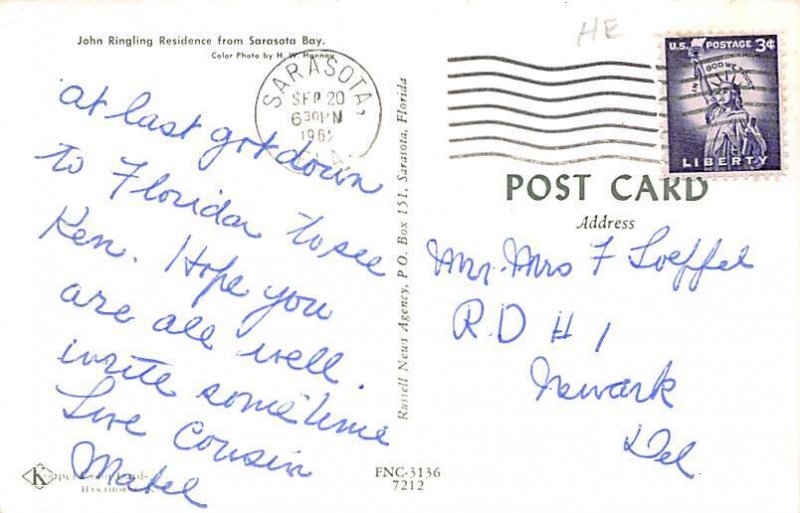 John Ringling Residence from Sarasota Bay.
Color Photo by H. W. Hannau
at last got down
to Florida to see
Ken. Hope you
are all well.
write sometime
Love Cousin
Mabel
FNC-3136
7212
Russell News Agency, P.O. Box 151, Sarasota, Florida
HE
SARASOTA,
SEP 20
630PM
U.S. POSTAGE 3¢
IN GOD WE TRUST
LIBERTY
POST CARD
Address
Mr. Mrs F Loeffel
R.D # 1
Newark
Del